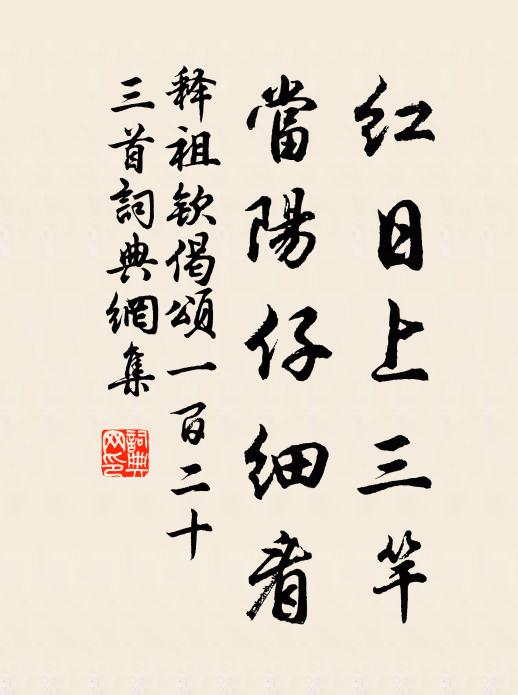 紅日上三竿
當陽仔細看
釋祖欽偈頌一百二十
三首詞典網集
詞典網印